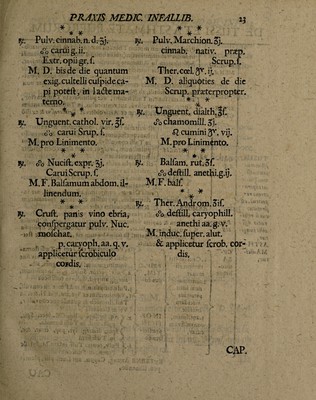 PRAXIS MEDIC. INFALLIB. 23
* * *
℞. Pulv. cinnab. n. d. ʒj.
carui g. ii.
Extr. opii gr. ſ.
M. D. bis de die quantum
exig. cultelli cuſpide ca-
pi poteſt, in lacte ma-
terno.
* * *
℞. Unguent. cathol. vir. ℥ſ.
carui Srup. ſ.
M. pro Linimento.
* * *
℞. Nuciſt. expr. ʒj.
Carui Scrup. ſ.
M. F. Balſamum abdom. il-
linendum.
* * *
℞. Cruſt. panis vino ebria,
conſpergatur pulv. Nuc.
moſchat.
p. caryoph. aa. q. v.
applicetur ſcrobiculo
cordis.
* * *
℞. Pulv. Marchion. ʒj.
cinnab. nativ. præp.
Scrup. ſ.
Ther. cœl. gr. ij.
M. D. aliquoties de die
Scrup. præterpropter.
* * *
℞. Unguent. dialth. ℥ſ.
chamomill. ʒj.
cumini gr. vij.
M. pro Linimento.
* * *
℞. Balſam. rut. ʒſ.
deſtill. anethi. g. ij.
M. F. balſ.
* * *
℞. Ther. Androm. ℥iſ.
deſtill. caryophill.
anethi aa. g. v.
M. induc. ſuper. alut.
& applicetur ſcrob. cor-
dis.
CAP.